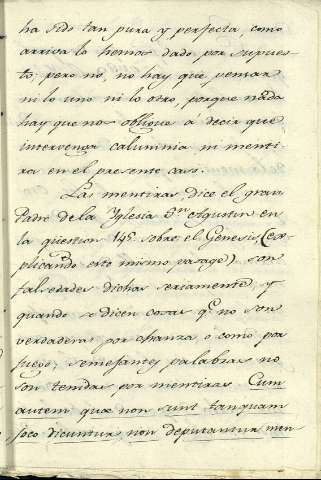 ha sido tan pura y perfecta, como
arriva lo hemos dado por supues-
to; pero no, no hay que pensar
ni lo uno ni lo otro, porque nada
hay que nos obligue a decir que
intervenga calumnia ni menti-
ra en el presente caso.
Las mentiras, dice el gran
Padre de la Yglesia Sn. Agustin en
la question 145. sobre el Genesis, (es-
plicando este mismo pasage) son
falsedades dichas seriamente, y
quando se dicen cosas qe. no son
verdaderas por chanza ó como por
juego; semejantes palabras no
son tenidas por mentiras. Cum
autem quæ non sunt tanquam
joco dicuntur non deputantur men